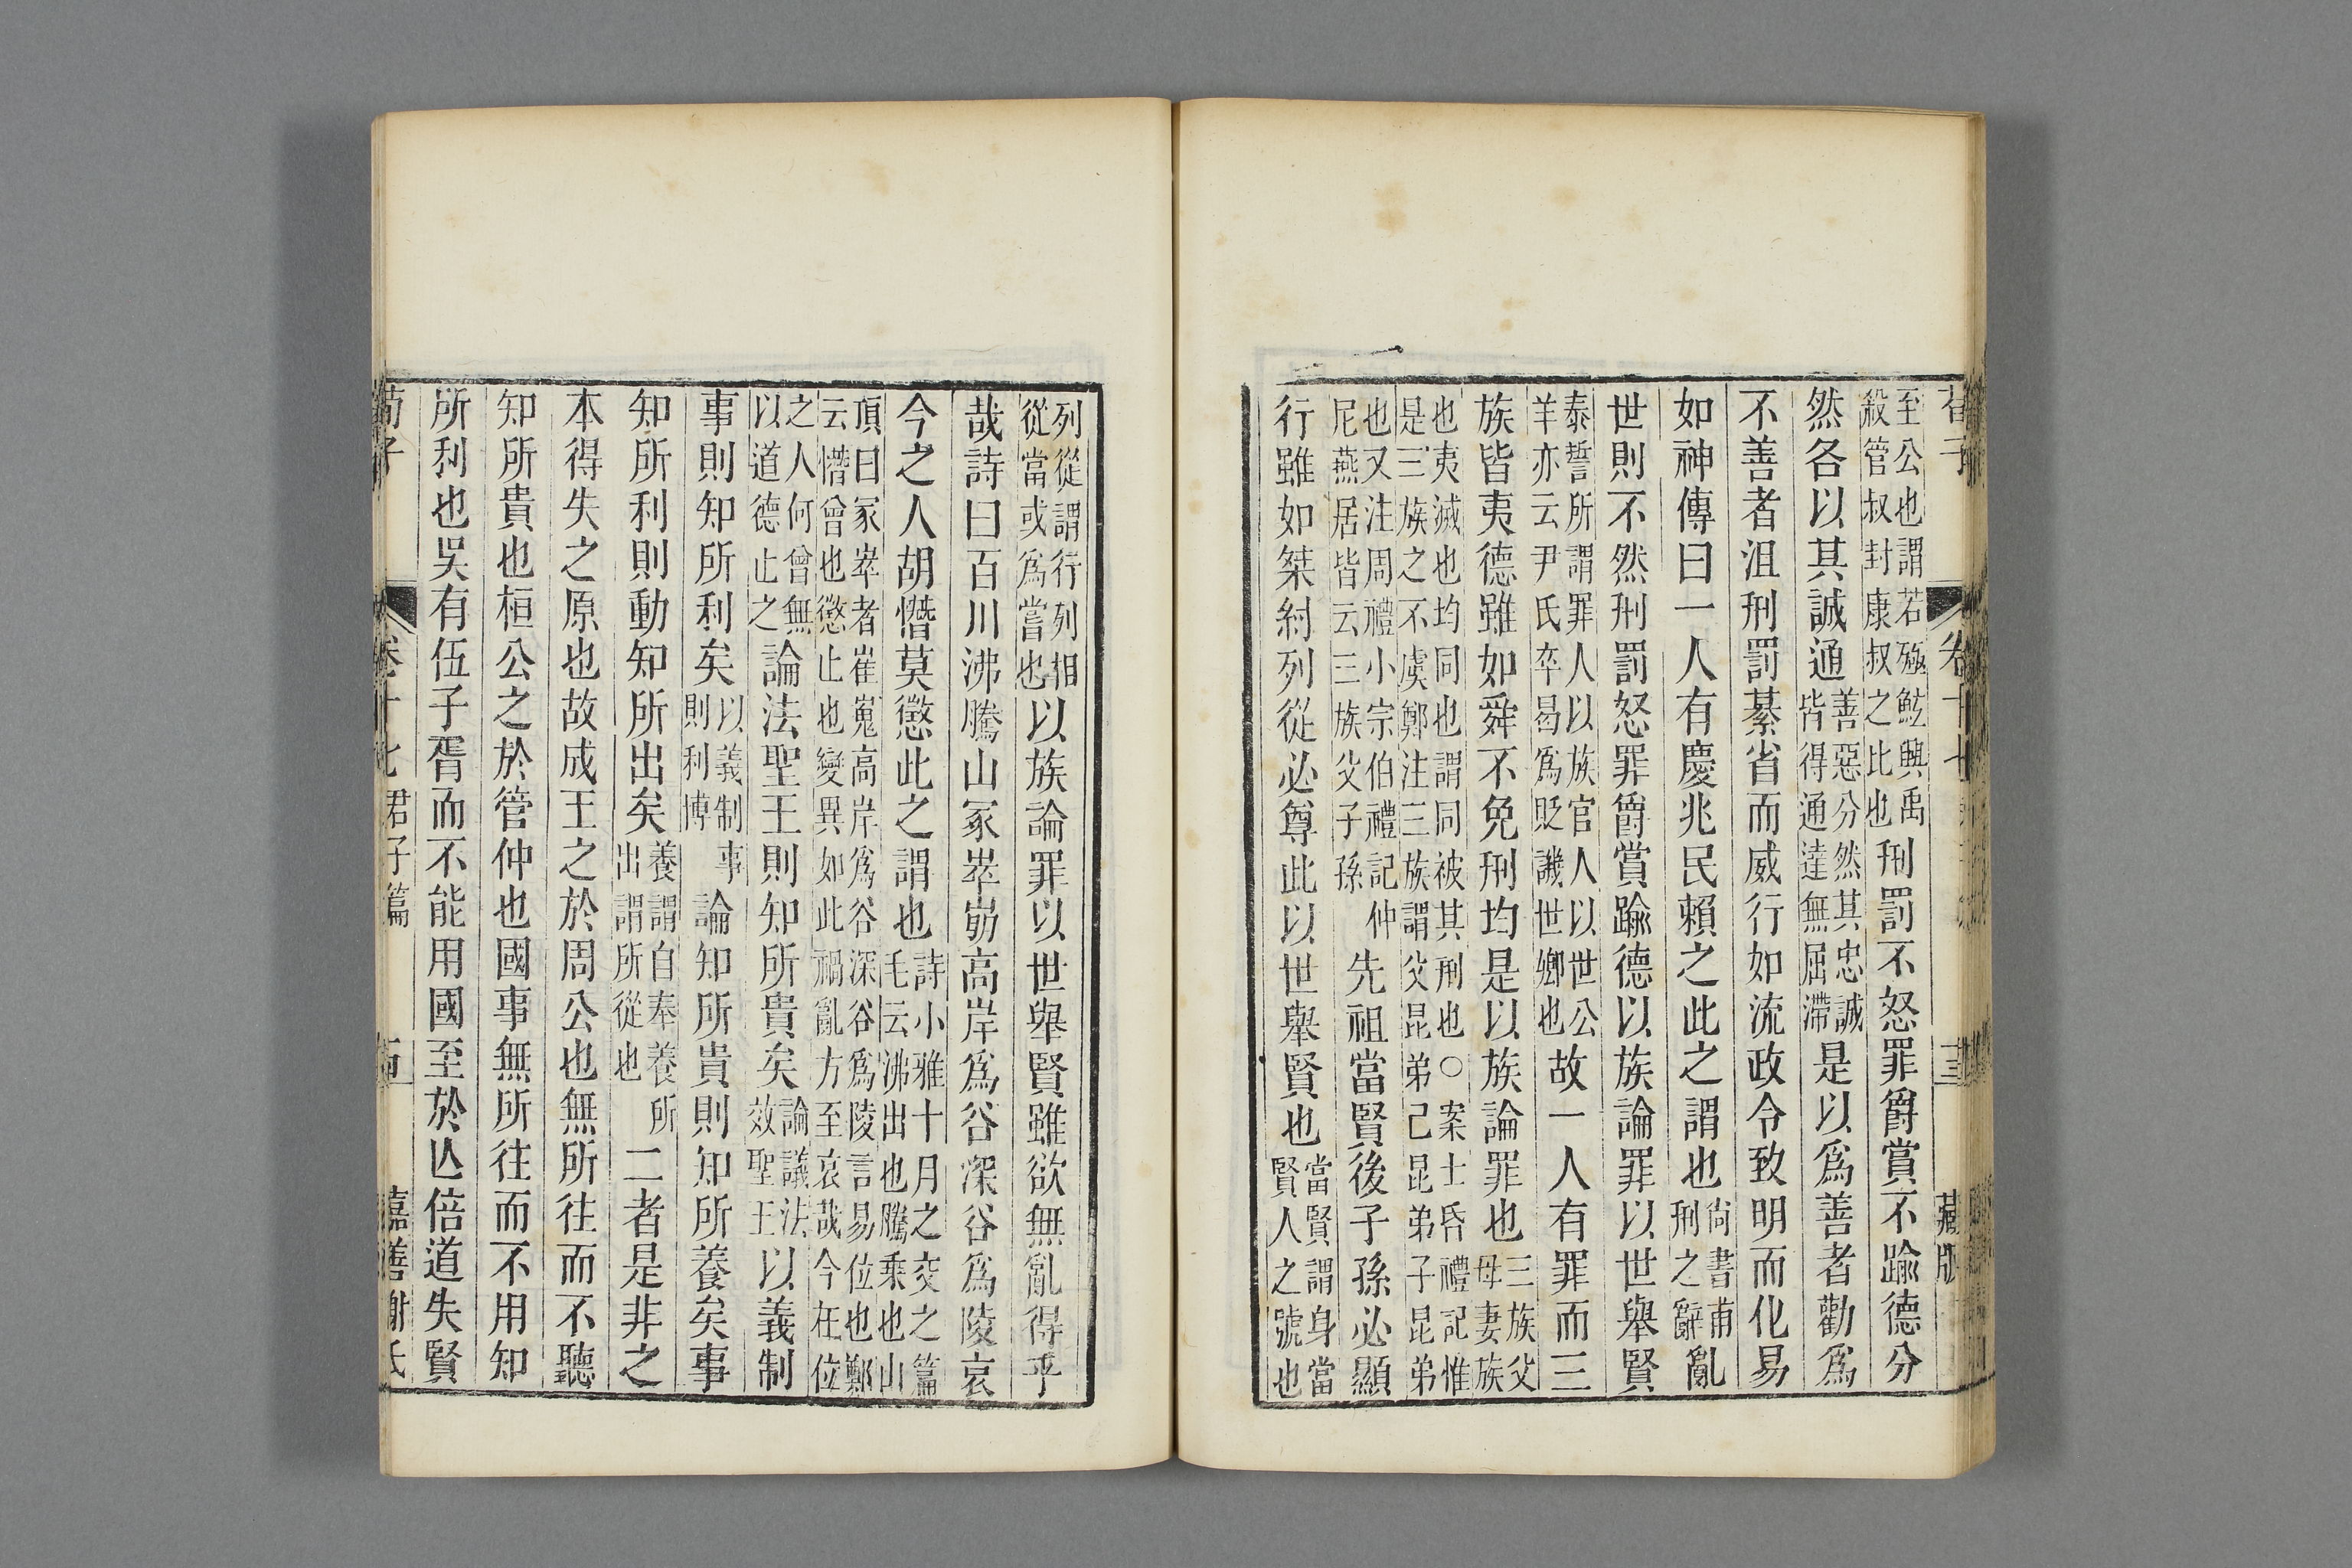 荀子 卷十七 十三 藏版
至公也謂若殛鯀興禹殺管叔封康叔之比也刑罰不怒罪爵賞不踰德分
然各以其誠通善惡分然其忠誠皆得通達無屈滯是以爲善者勸爲
不善者沮刑罰綦省而威行如流政令致明而化易
如神傳曰一人有慶兆民賴之此之謂也尙書甫刑之辭亂
世則不然刑罰怒罪爵賞踰德以族論罪以世舉賢
泰誓所謂罪人以族官人以世公羊亦云尹氏卒曷爲貶譏世卿也故一人有罪而三
族皆夷德雖如舜不免刑均是以族論罪也三族父母妻族
也夷滅也均同也謂同被其刑也○案士昏禮記惟是三族之不虞鄭注三族謂父昆弟己昆弟子昆弟
也又注周禮小宗伯禮記仲尼燕居皆云三族父子孫先祖當賢後子孫必顯
行雖如桀紂列從必尊此以世舉賢也當賢謂身當賢人之號也
列從謂行列相從當或爲嘗也以族論罪以世舉賢雖欲無亂得乎
哉詩曰百川沸騰山冢崒崩高岸爲谷深谷爲陵哀
今之人胡憯莫懲此之謂也詩小雅十月之交之篇毛云沸出也騰乘也山
頂曰冢崒者崔嵬高岸爲谷深谷爲陵言易位也鄭云憯曾也懲止也變異如此禍亂方至哀哉今在位
之人何曾無以道德止之論法聖王則知所貴矣論議法效聖王以義制
事則知所利矣以義制事則利博論知所貴則知所養矣事
知所利則動知所出矣養謂自奉養所出謂所從也二者是非之
本得失之原也故成王之於周公也無所往而不聽
知所貴也桓公之於管仲也國事無所往而不用知
所利也吳有伍子胥而不能用國至於亾倍道失賢
荀子 卷十七 君子篇 嘉善謝氏